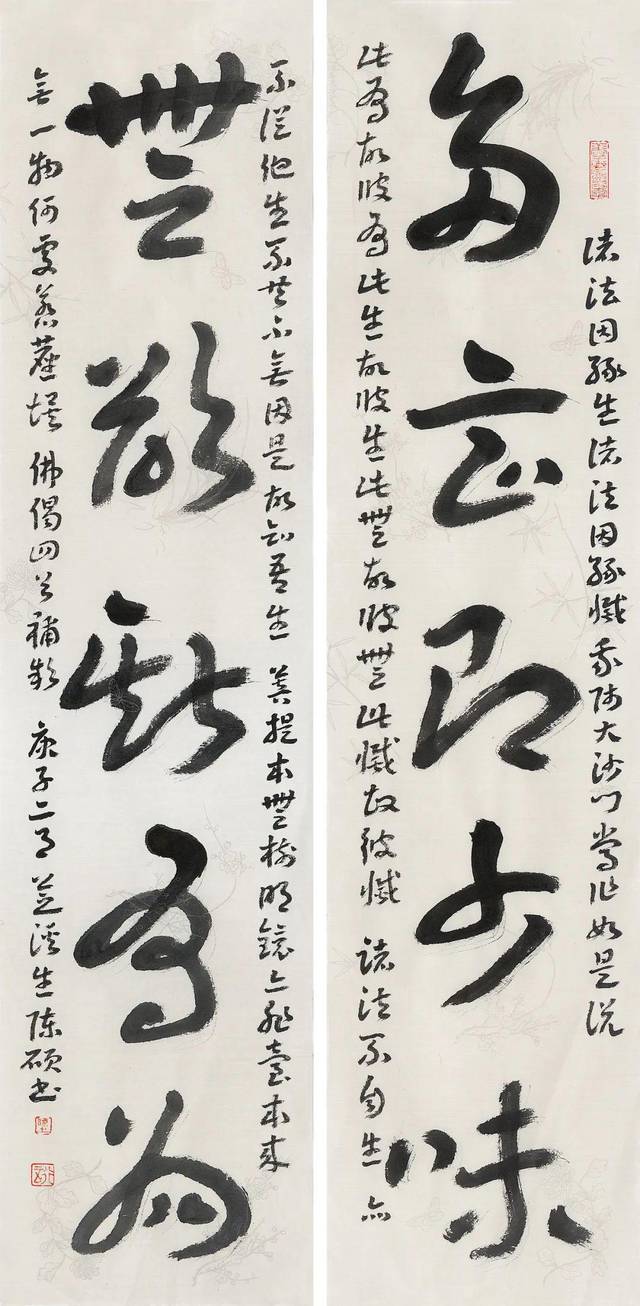 諸法因緣生諸法因緣滅我師大沙門常作如是說
多言即少味
此有故彼有此生故彼生此無故彼無此滅故彼滅 諸法不自生亦
不從他生不共不無因是故知吾生 菩提本無樹明鏡亦非臺本來
無欲斯有為
無一物何處惹塵埃 佛偈四首補款 庚子二月芝溪生陳碩書